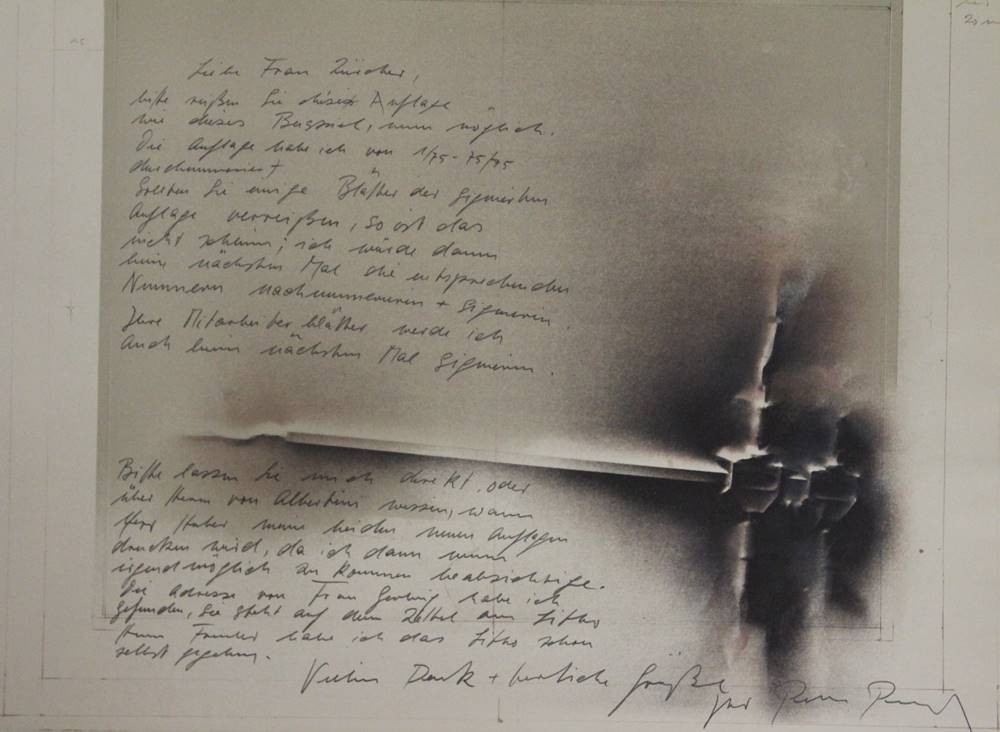 Liebe Frau Zürcher,
bitte reißen Sie diese Auflage
wie dieses Beispiel, wenn möglich.
Die Auflage habe ich von 1/75-75/75
durchnummeriert
Sollten Sie einige Blätter der signierten
Auflage verreißen, so ist das
nicht schlimm; ich würde dann
beim nächsten Mal die entsprechenden
Nummern nachnummerieren + signieren.
Ihre Mitarbeiterblätter werde ich
auch beim nächsten Mal signieren.
Bitte lassen Sie mich direkt, oder
über Herrn von Albertini wissen, wann
Herr Huber meine beiden neuen Auflagen
drucken wird, da ich dann wenn
irgendmöglich zu kommen beabsichtige.
Die Adresse von Frau habe ich
gefunden, Sie steht auf dem Zettel am Litho
Herrn habe ich das Litho schon
selbst gegeben.
Vielen Dank + herzliche Grüße
Ihr